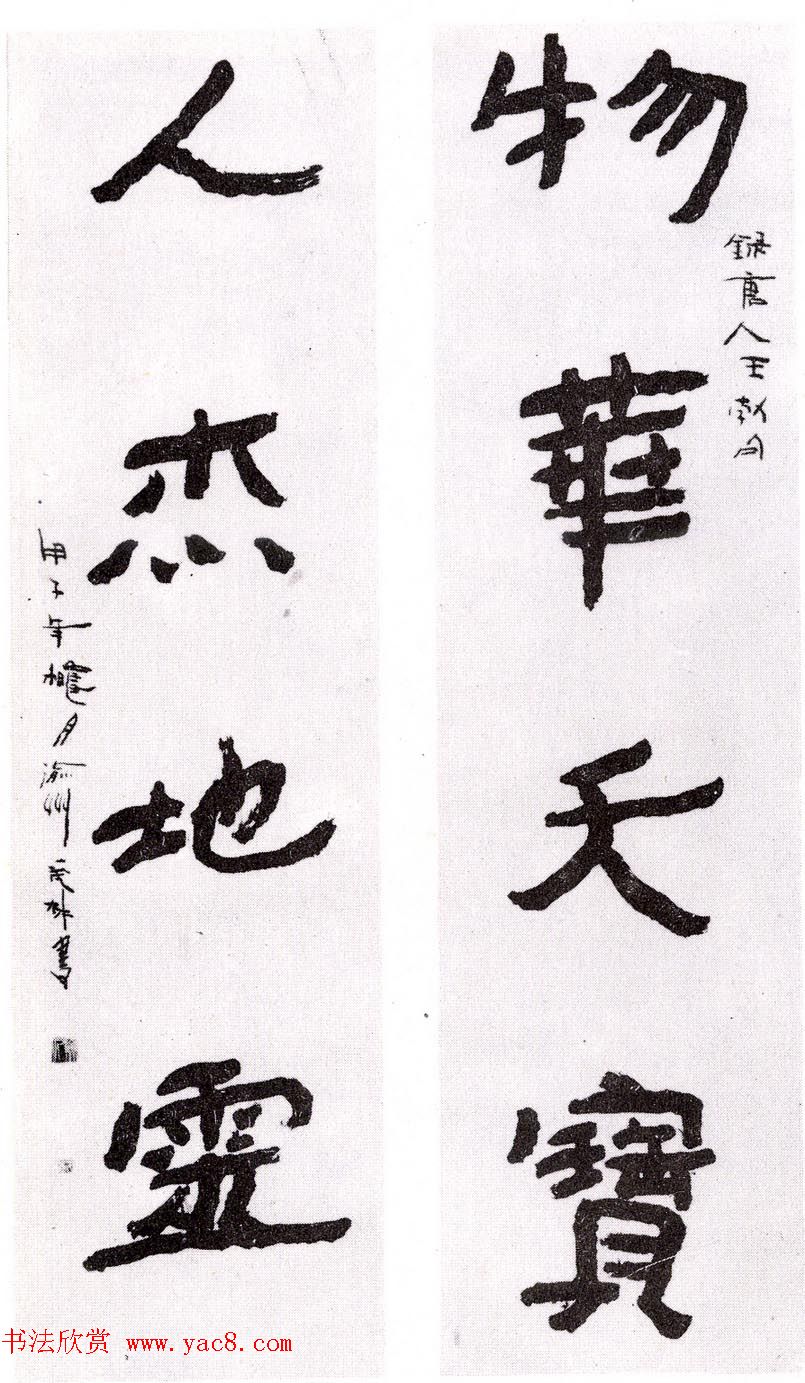 物華天寶
録唐人王勃句
人杰地霊
甲子年月渝州林書
书法欣赏 www.yac8.com